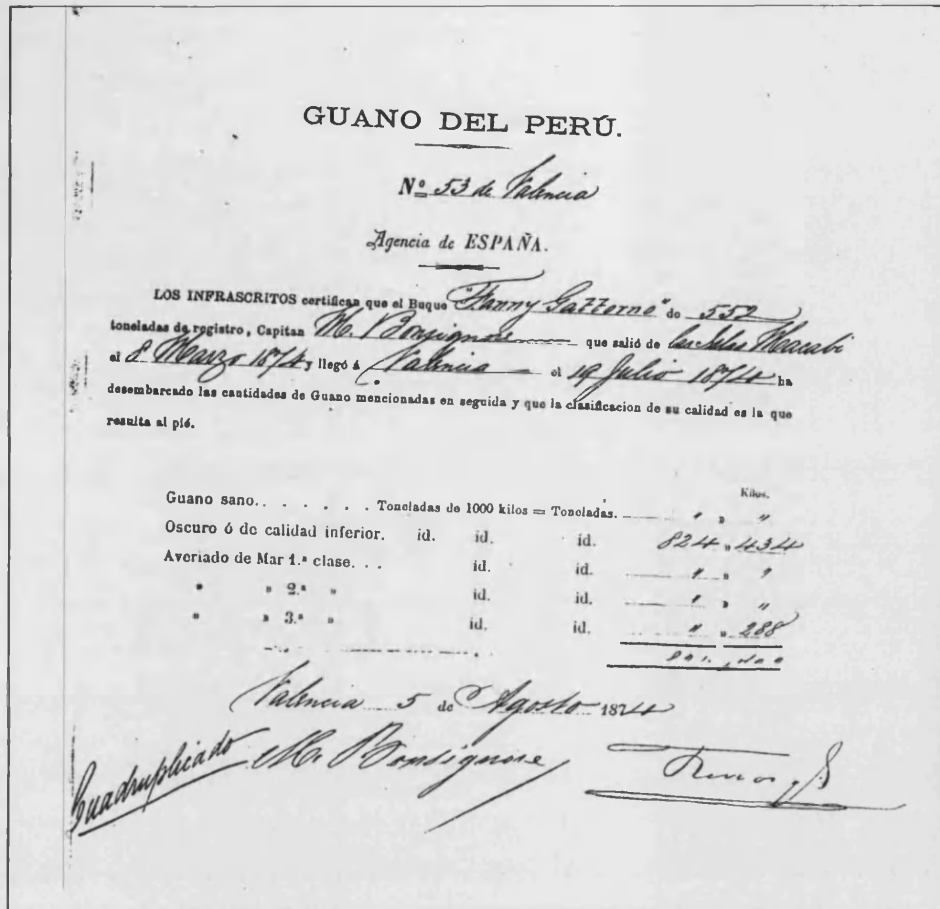 GUANO DEL PERÚ.
Nº 53 de Valencia
Agencia de ESPAÑA.
LOS INFRASCRITOS certifican que el Buque "Fanny Gazzerne" de 552
toneladas de registro, Capitan M. Bonsignore que salió de las Islas Macabi
el 8 Marzo 1874, llegó á Valencia el 19 Julio 1874 ha
desembarcado las cantidades de Guano mencionadas en seguida y que la clasificacion de su calidad es la que
resulta al pié.
Kilos.
Guano sano. . . . . . Toneladas de 1000 kilos = Toneladas. " " "
Oscuro ó de calidad inferior. id. id. id. 824 " 434
Averiado de Mar 1.ª clase. . . id. id. " " "
" " 2.ª " id. id. " " "
" " 3.ª " id. id. " " 288
Valencia 5 de Agosto 1874
Cuadruplicado M. Bonsignore